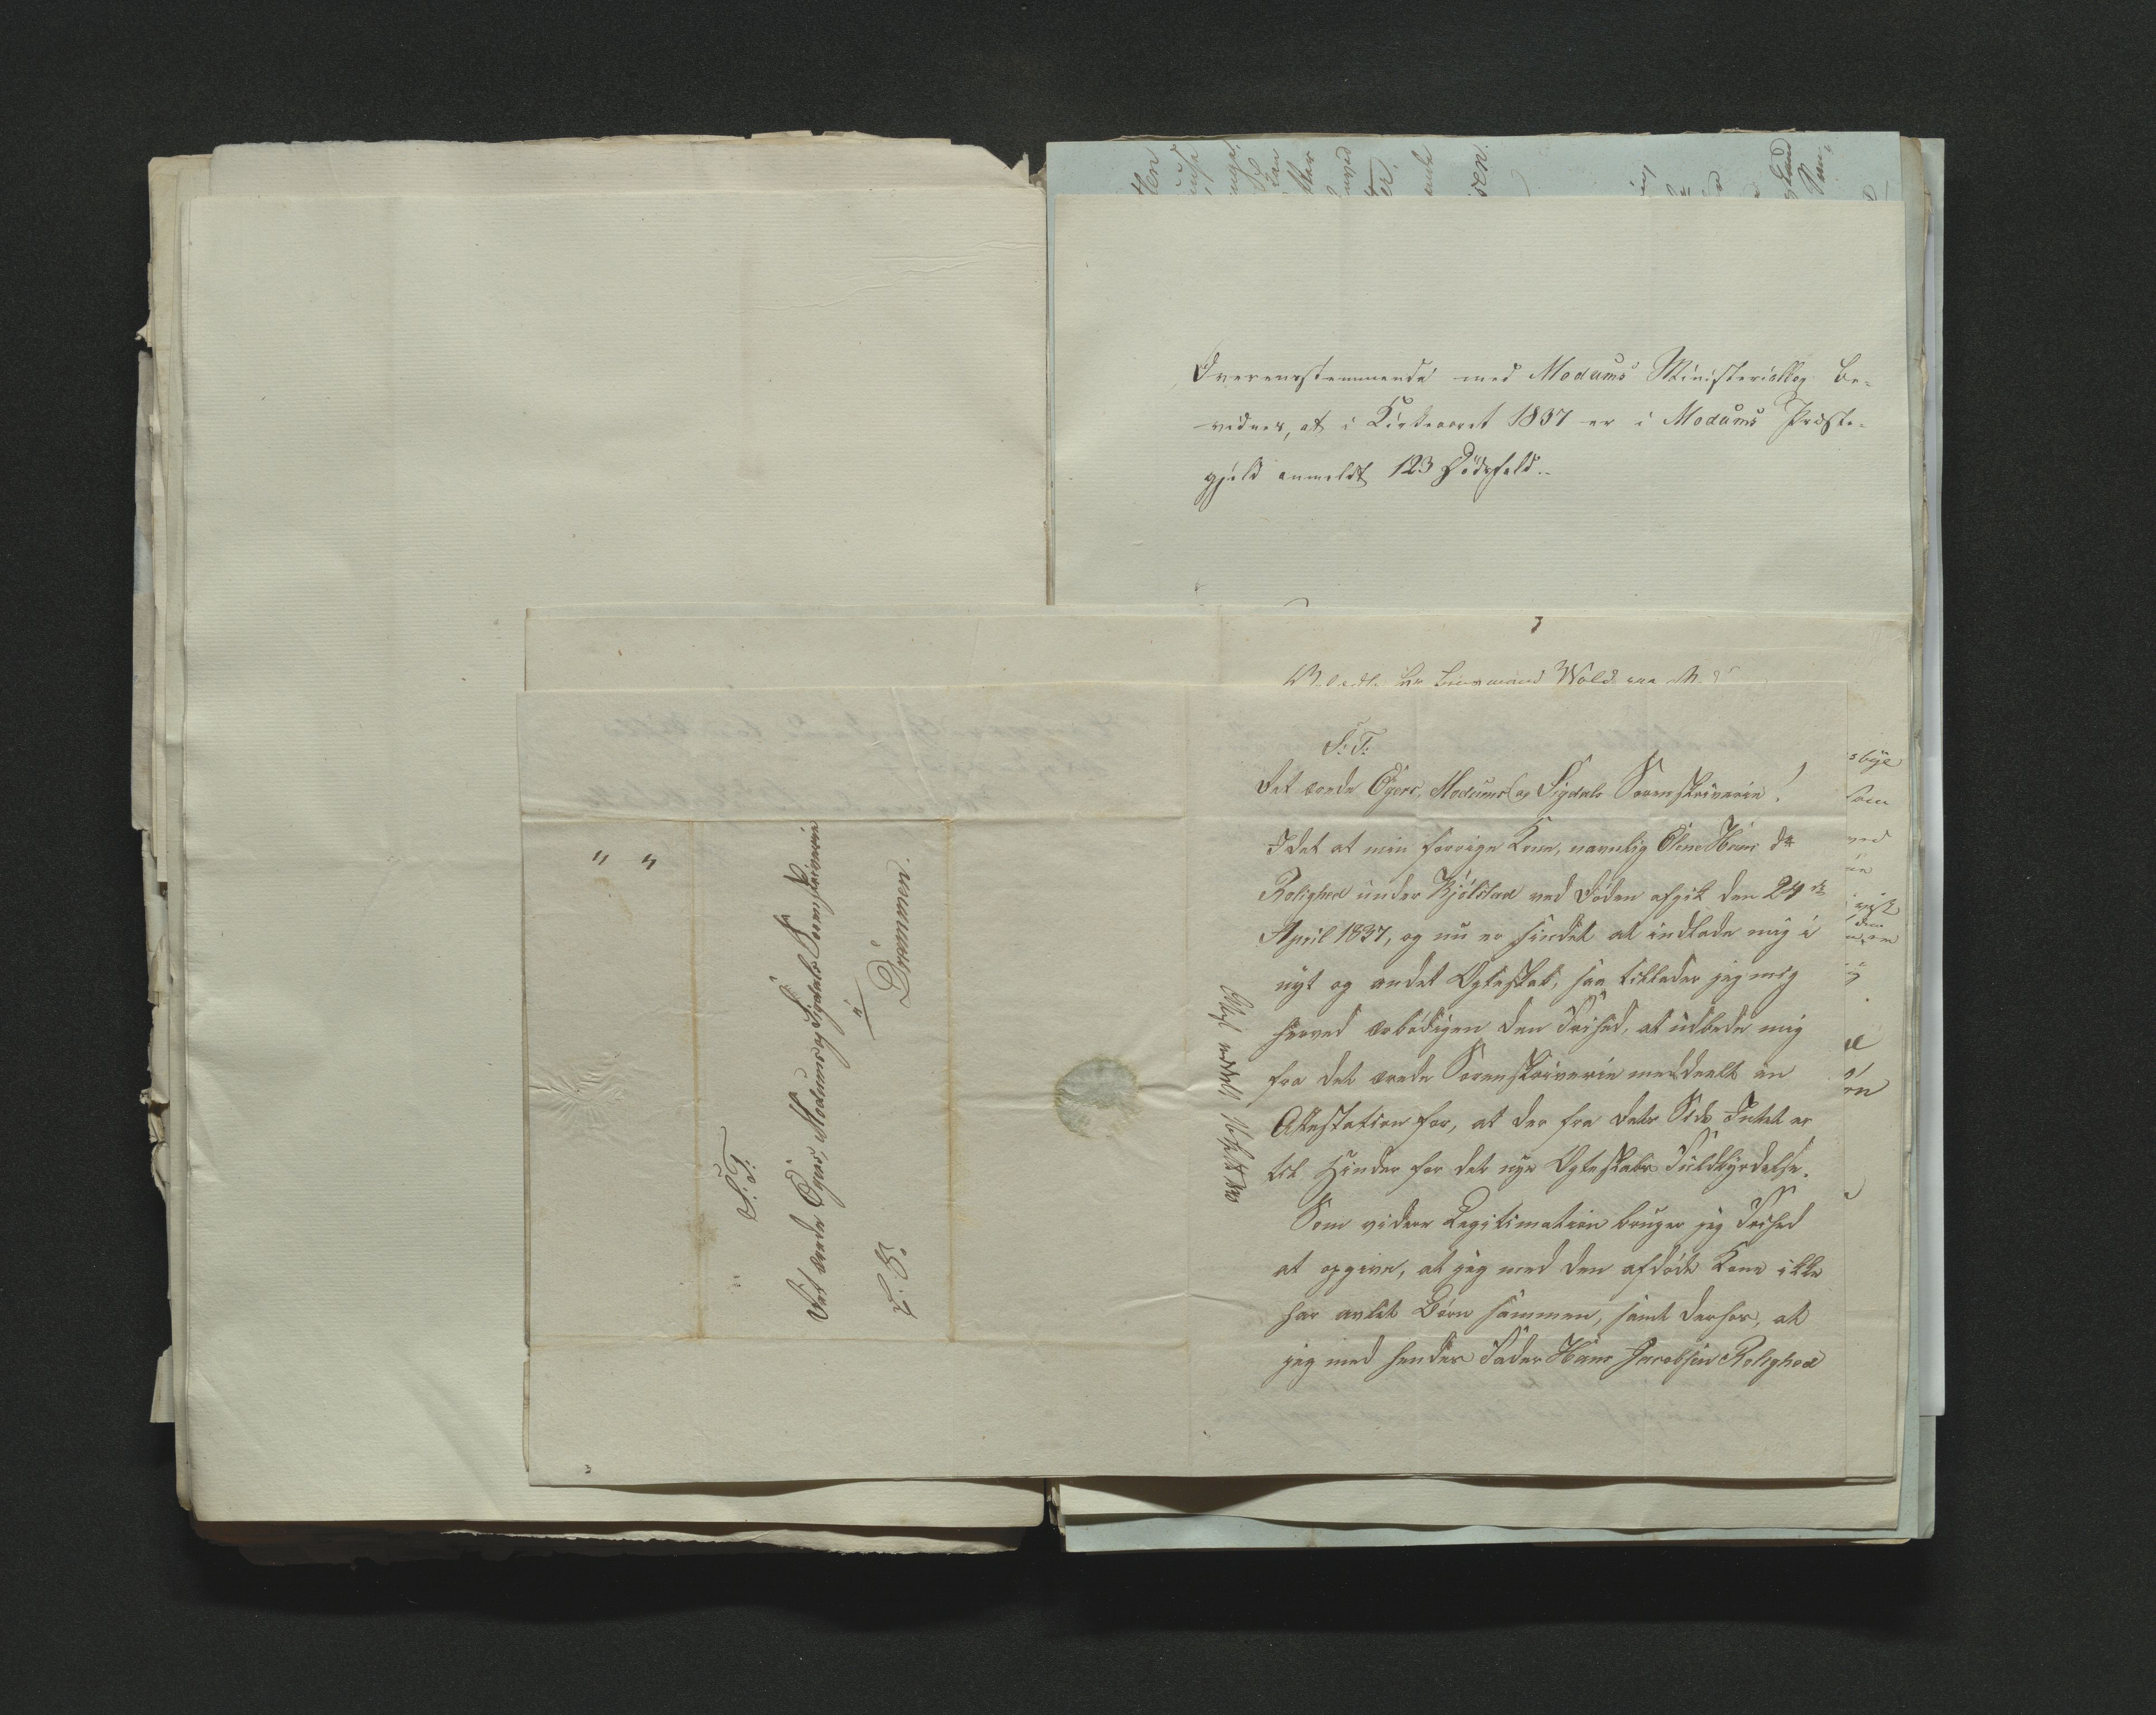 Overensstemmende med Modums Ministerialbog be-
vidnes, at i Kirkeaaret 1837 er i Modums Præste-
gjeld anmeldt 123 Dödsfald..
Wold
S: T:
Det ærede Ögers, Modums og Sigdals Sorenskriverie!
Idet at min forrige Kone, navnlig Olene Hans dr
Rolighed under Kjölstad ved Döden afgik den 24de
April 1837, og nu er sindet at indlade mig i
nyt og andet Ægteskab, saa tillader jeg mig
herved ærbödigen den Frihed, at udbede mig
fra det ærede Sorenskriverie meddeelt en
Attestation for, at der fra dets Side Intet er
til Hinder for det nye Ægteskabs Fuldbyrdelse.
Som videre Legitimation bruger jeg Frihed
at opgive, at jeg med den afdöde Kone ikke
har avlet Börn sammen, samt derfor, at
jeg med hendes Fader Hans Jacobsen Rolighed
S: T:
Det ærede Ögers, Modums og Sigdals Sorenskriverie
a
Drammen.